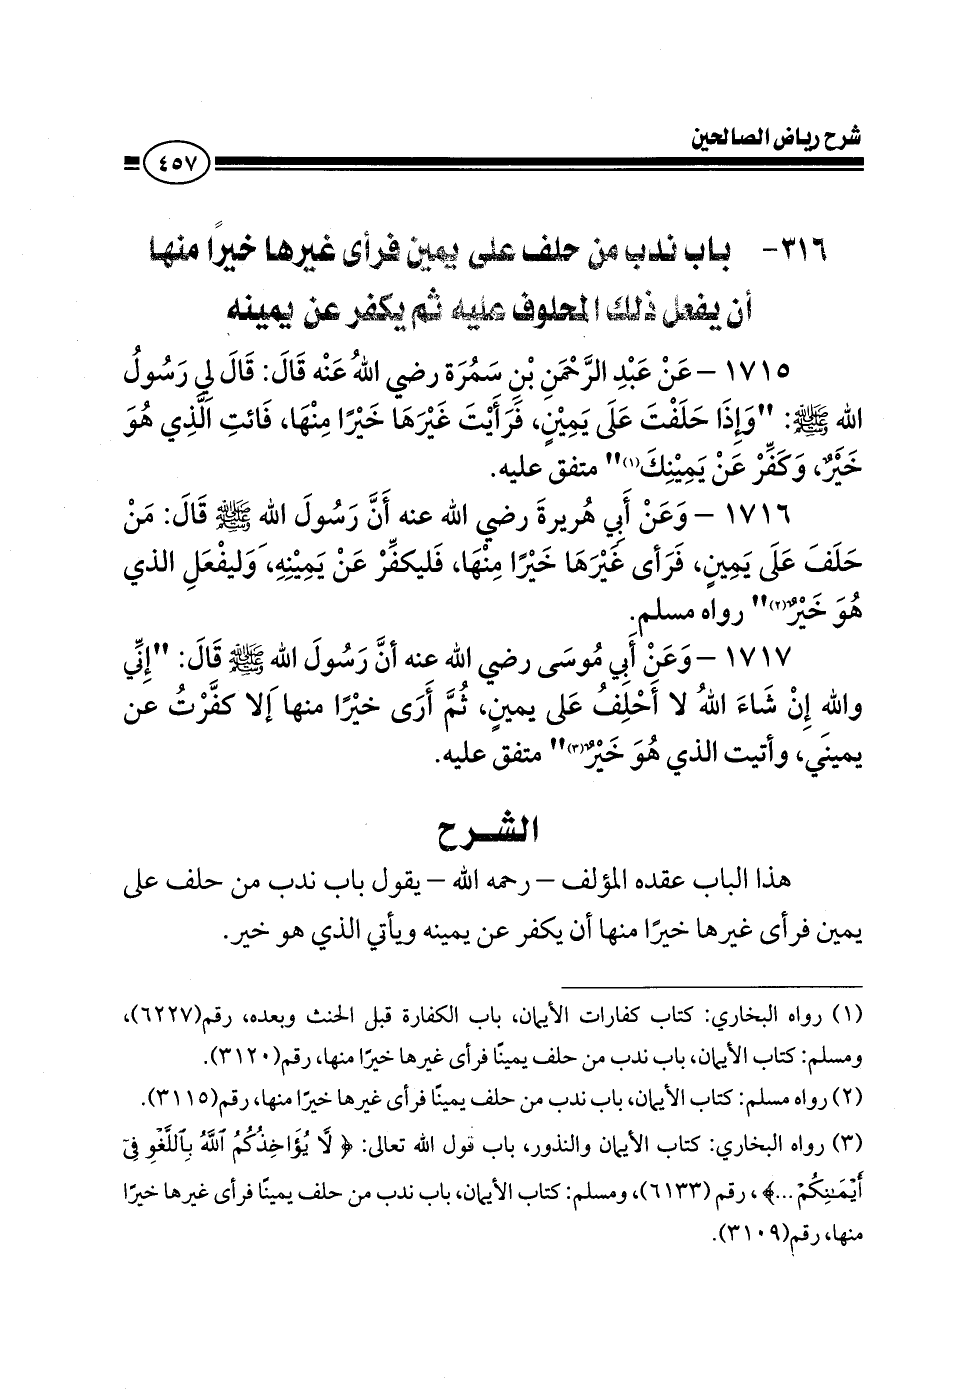 شرح رياض الصالحين
٤٥٧
٣١٦- باب ندب من حلف على يمين فرأى غيرها خيرًا منها
أن يفعل ذلك المحلوف عليه ثم يكفر عن يمينه
١٧١٥ – عَنْ عَبْدِ الرَّحْمَنِ بْنِ سَمُرَة رضي اللهُ عَنْه قَالَ: قَالَ لِي رَسُولُ
الله ﷺ: "وَإِذَا حَلَفْتَ عَلَى يَمِيْنٍ، فَرَأَيْتَ غَيْرَهَا خَيْرًا مِنْهَا، فَائتِ الَّذِي هُوَ
خَيْرٌ، وَكَفِّرْ عَنْ يَمِيْنِكَ(١)" متفق عليه.
١٧١٦ – وَعَنْ أَبِي هُرِيرةَ رضي الله عنه أَنَّ رَسُولَ الله ﷺ قَالَ: مَنْ
حَلَفَ عَلَى يَمِينٍ، فَرَأى غَيْرَهَا خَيْرًا مِنْهَا، فَليكفِّرْ عَنْ يَمِيْنِهِ، وَليفْعَلِ الذي
هُوَ خَيْرٌ(٢)" رواه مسلم.
١٧١٧ – وَعَنْ أَبِي مُوسَى رضي الله عنه أنَّ رَسُولَ الله ﷺ قَالَ: "إِنِّي
والله إِنْ شَاءَ اللهُ لا أَحْلِفُ عَلى يمينٍ، ثُمَّ أَرَى خيْرًا منها إَلا كفَّرْتُ عن
يمينَي، وأتيت الذي هُوَ خَيْرٌ(٣)" متفق عليه.
الشـرح
هذا الباب عقده المؤلف – رحمه الله – يقول باب ندب من حلف على
يمين فرأى غيرها خيرًا منها أن يكفر عن يمينه ويأتي الذي هو خير.
(١) رواه البخاري: كتاب كفارات الأيمان، باب الكفارة قبل الحنث وبعده، رقم(٦٢٢٧)،
ومسلم: كتاب الأيمان، باب ندب من حلف يمينًا فرأى غيرها خيرًا منها، رقم(٣١٢٠).
(٢) رواه مسلم: كتاب الأيمان، باب ندب من حلف يمينًا فرأى غيرها خيرًا منها، رقم(٣١١٥).
(٣) رواه البخاري: كتاب الأيمان والنذور، باب قول الله تعالى: ﴿ لَّا يُؤَاخِذُكُمُ ٱللَّهُ بِٱللَّغْوِ فِىٓ
أَيْمَـٰنِكُمْ ...﴾، رقم (٦١٣٣)، ومسلم: كتاب الأيمان، باب ندب من حلف يمينًا فرأى غيرها خيرًا
منها، رقم(٣١٠٩).